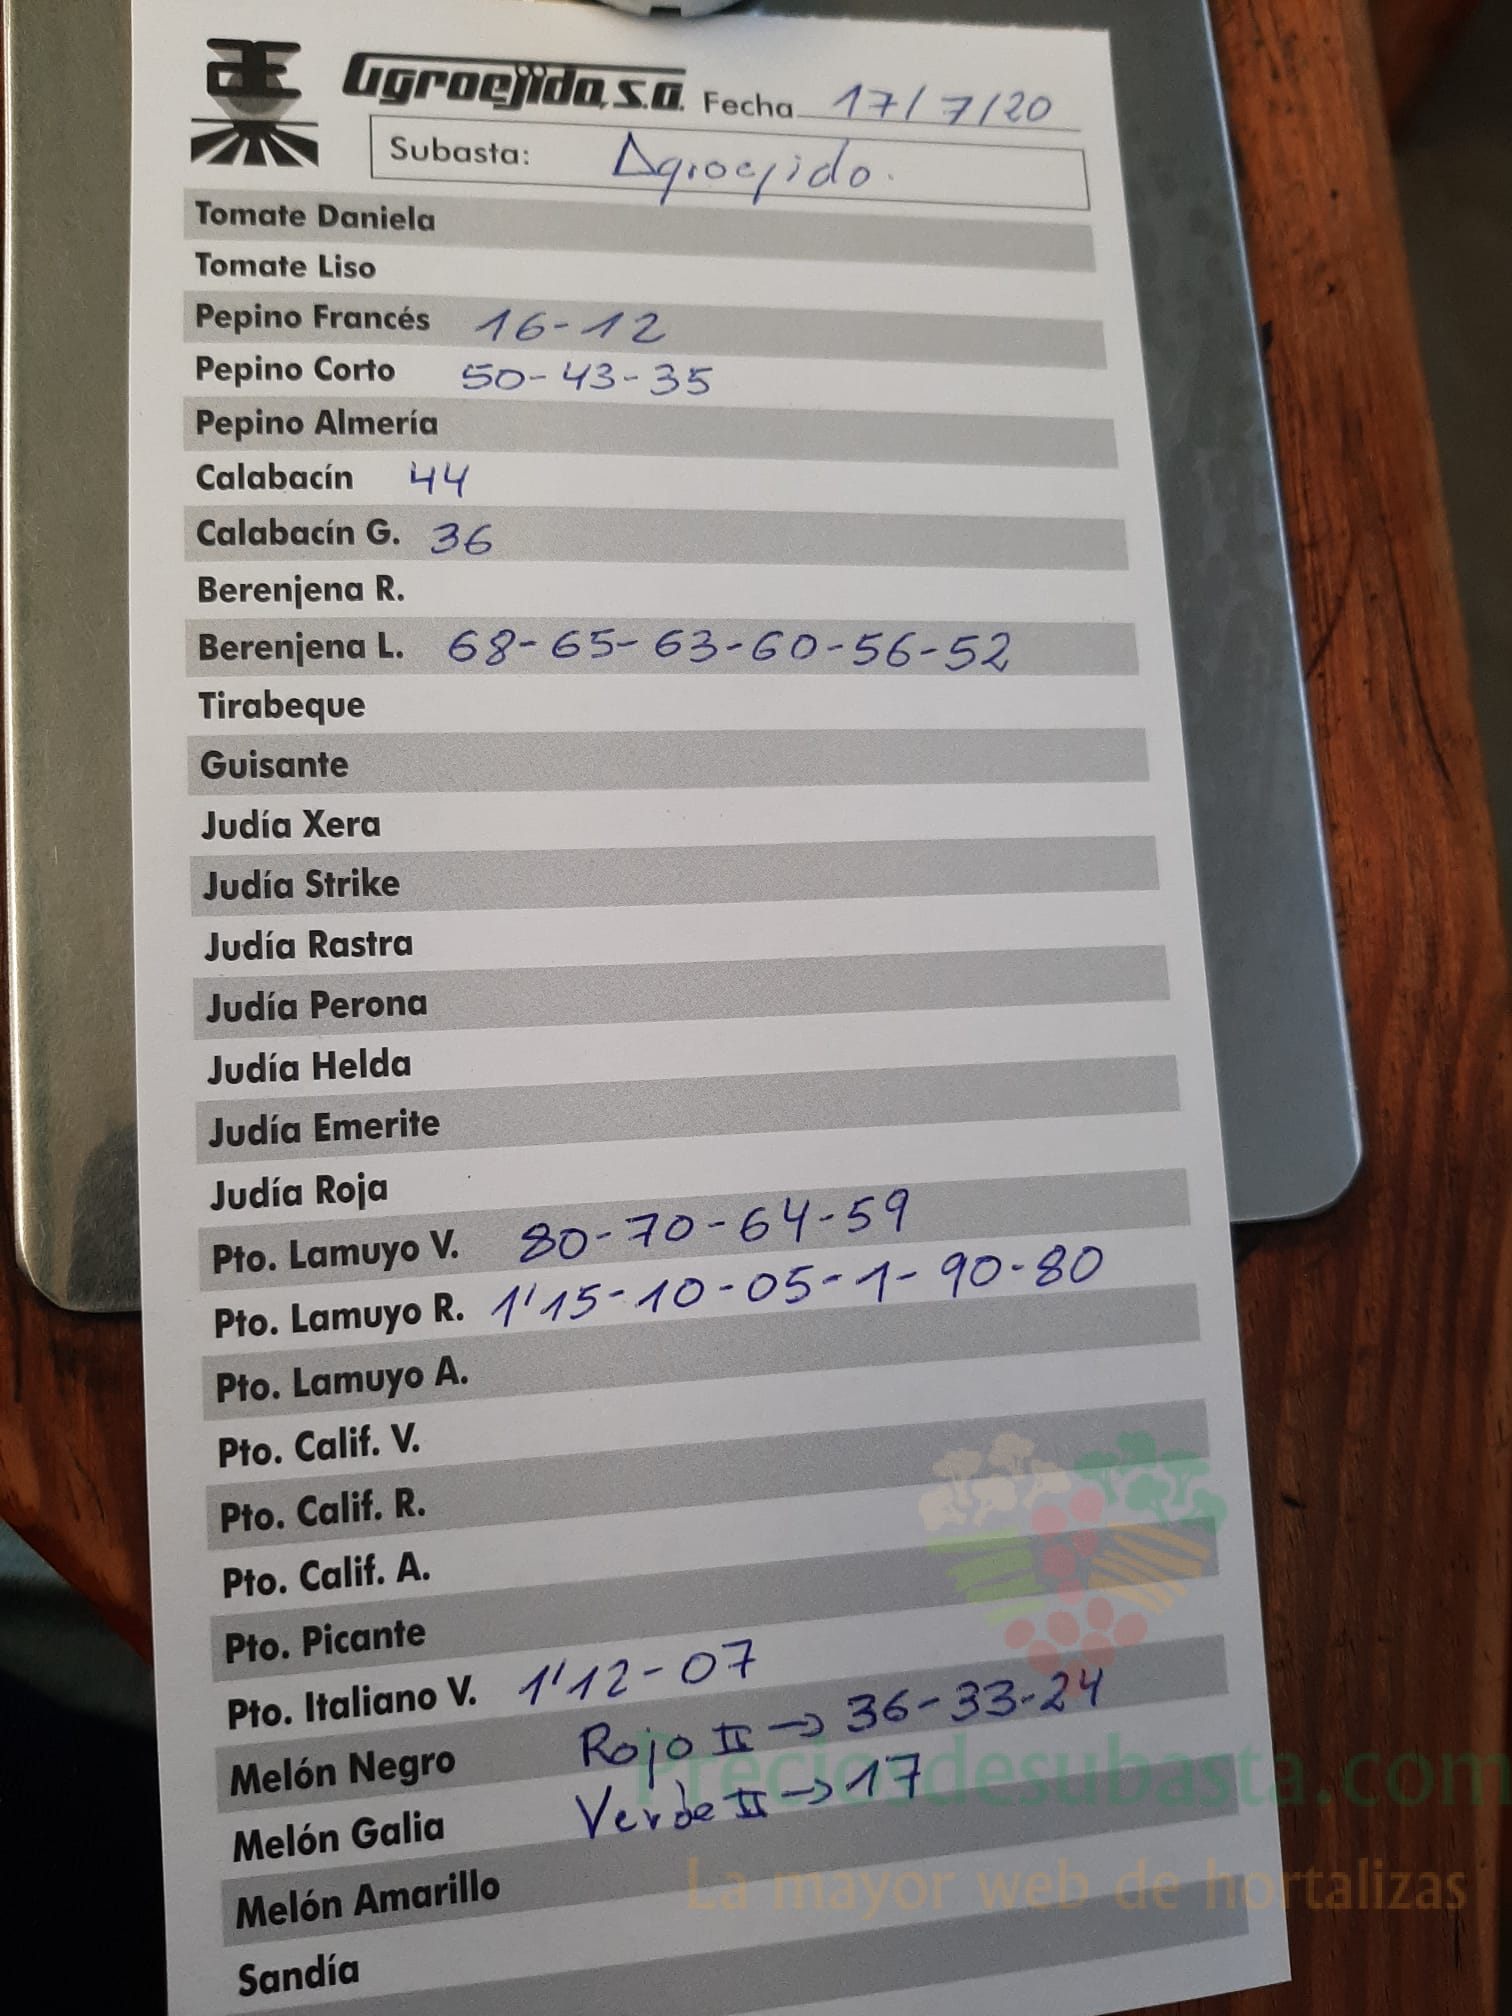 Agroejido, S.A. Fecha 17/7/20
Subasta: Agroejido.
Tomate Daniela
Tomate Liso
Pepino Francés 16-12
Pepino Corto 50-43-35
Pepino Almería
Calabacín 44
Calabacín G. 36
Berenjena R.
Berenjena L. 68-65-63-60-56-52
Tirabeque
Guisante
Judía Xera
Judía Strike
Judía Rastra
Judía Perona
Judía Helda
Judía Emerite
Judía Roja
Pto. Lamuyo V. 80-70-64-59
Pto. Lamuyo R. 1'15-10-05-1-90-80
Pto. Lamuyo A.
Pto. Calif. V.
Pto. Calif. R.
Pto. Calif. A.
Pto. Picante
Pto. Italiano V. 1'12-07
Melón Negro Rojo II → 36-33-24
Melón Galia Verde II → 17
Preciosdesubasta.com
Melón Amarillo
La mayor web de hortalizas
Sandía